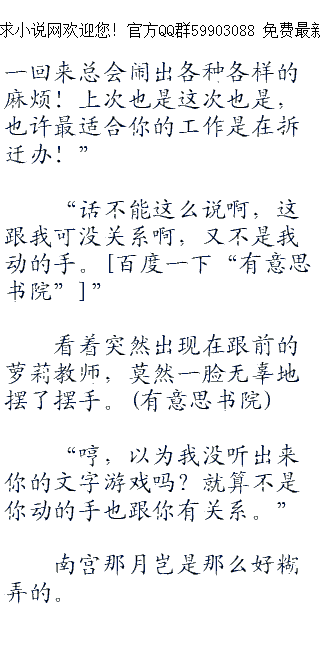 求小说网欢迎您! 官方QQ群59903088 免费最新
一回来总会闹出各种各样的
麻烦！上次也是这次也是，
也许最适合你的工作是在拆
迁办！”
“话不能这么说啊，这
跟我可没关系啊，又不是我
动的手。[百度一下“有意思
书院”]”
看着突然出现在跟前的
萝莉教师，莫然一脸无辜地
摆了摆手。(有意思书院)
“哼，以为我没听出来
你的文字游戏吗？就算不是
你动的手也跟你有关系。”
南宫那月岂是那么好糊
弄的。